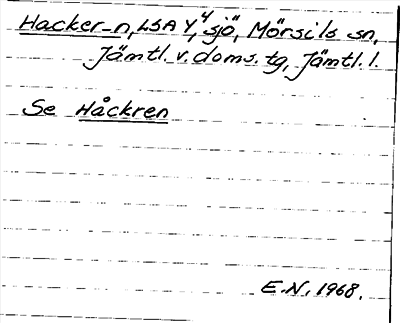 Hacker-n, LSA Y, 4 sjö, Mörsils sn,
Jämtl. v. doms. tg, Jämtl. l.
Se Håckren
E.N. 1968.